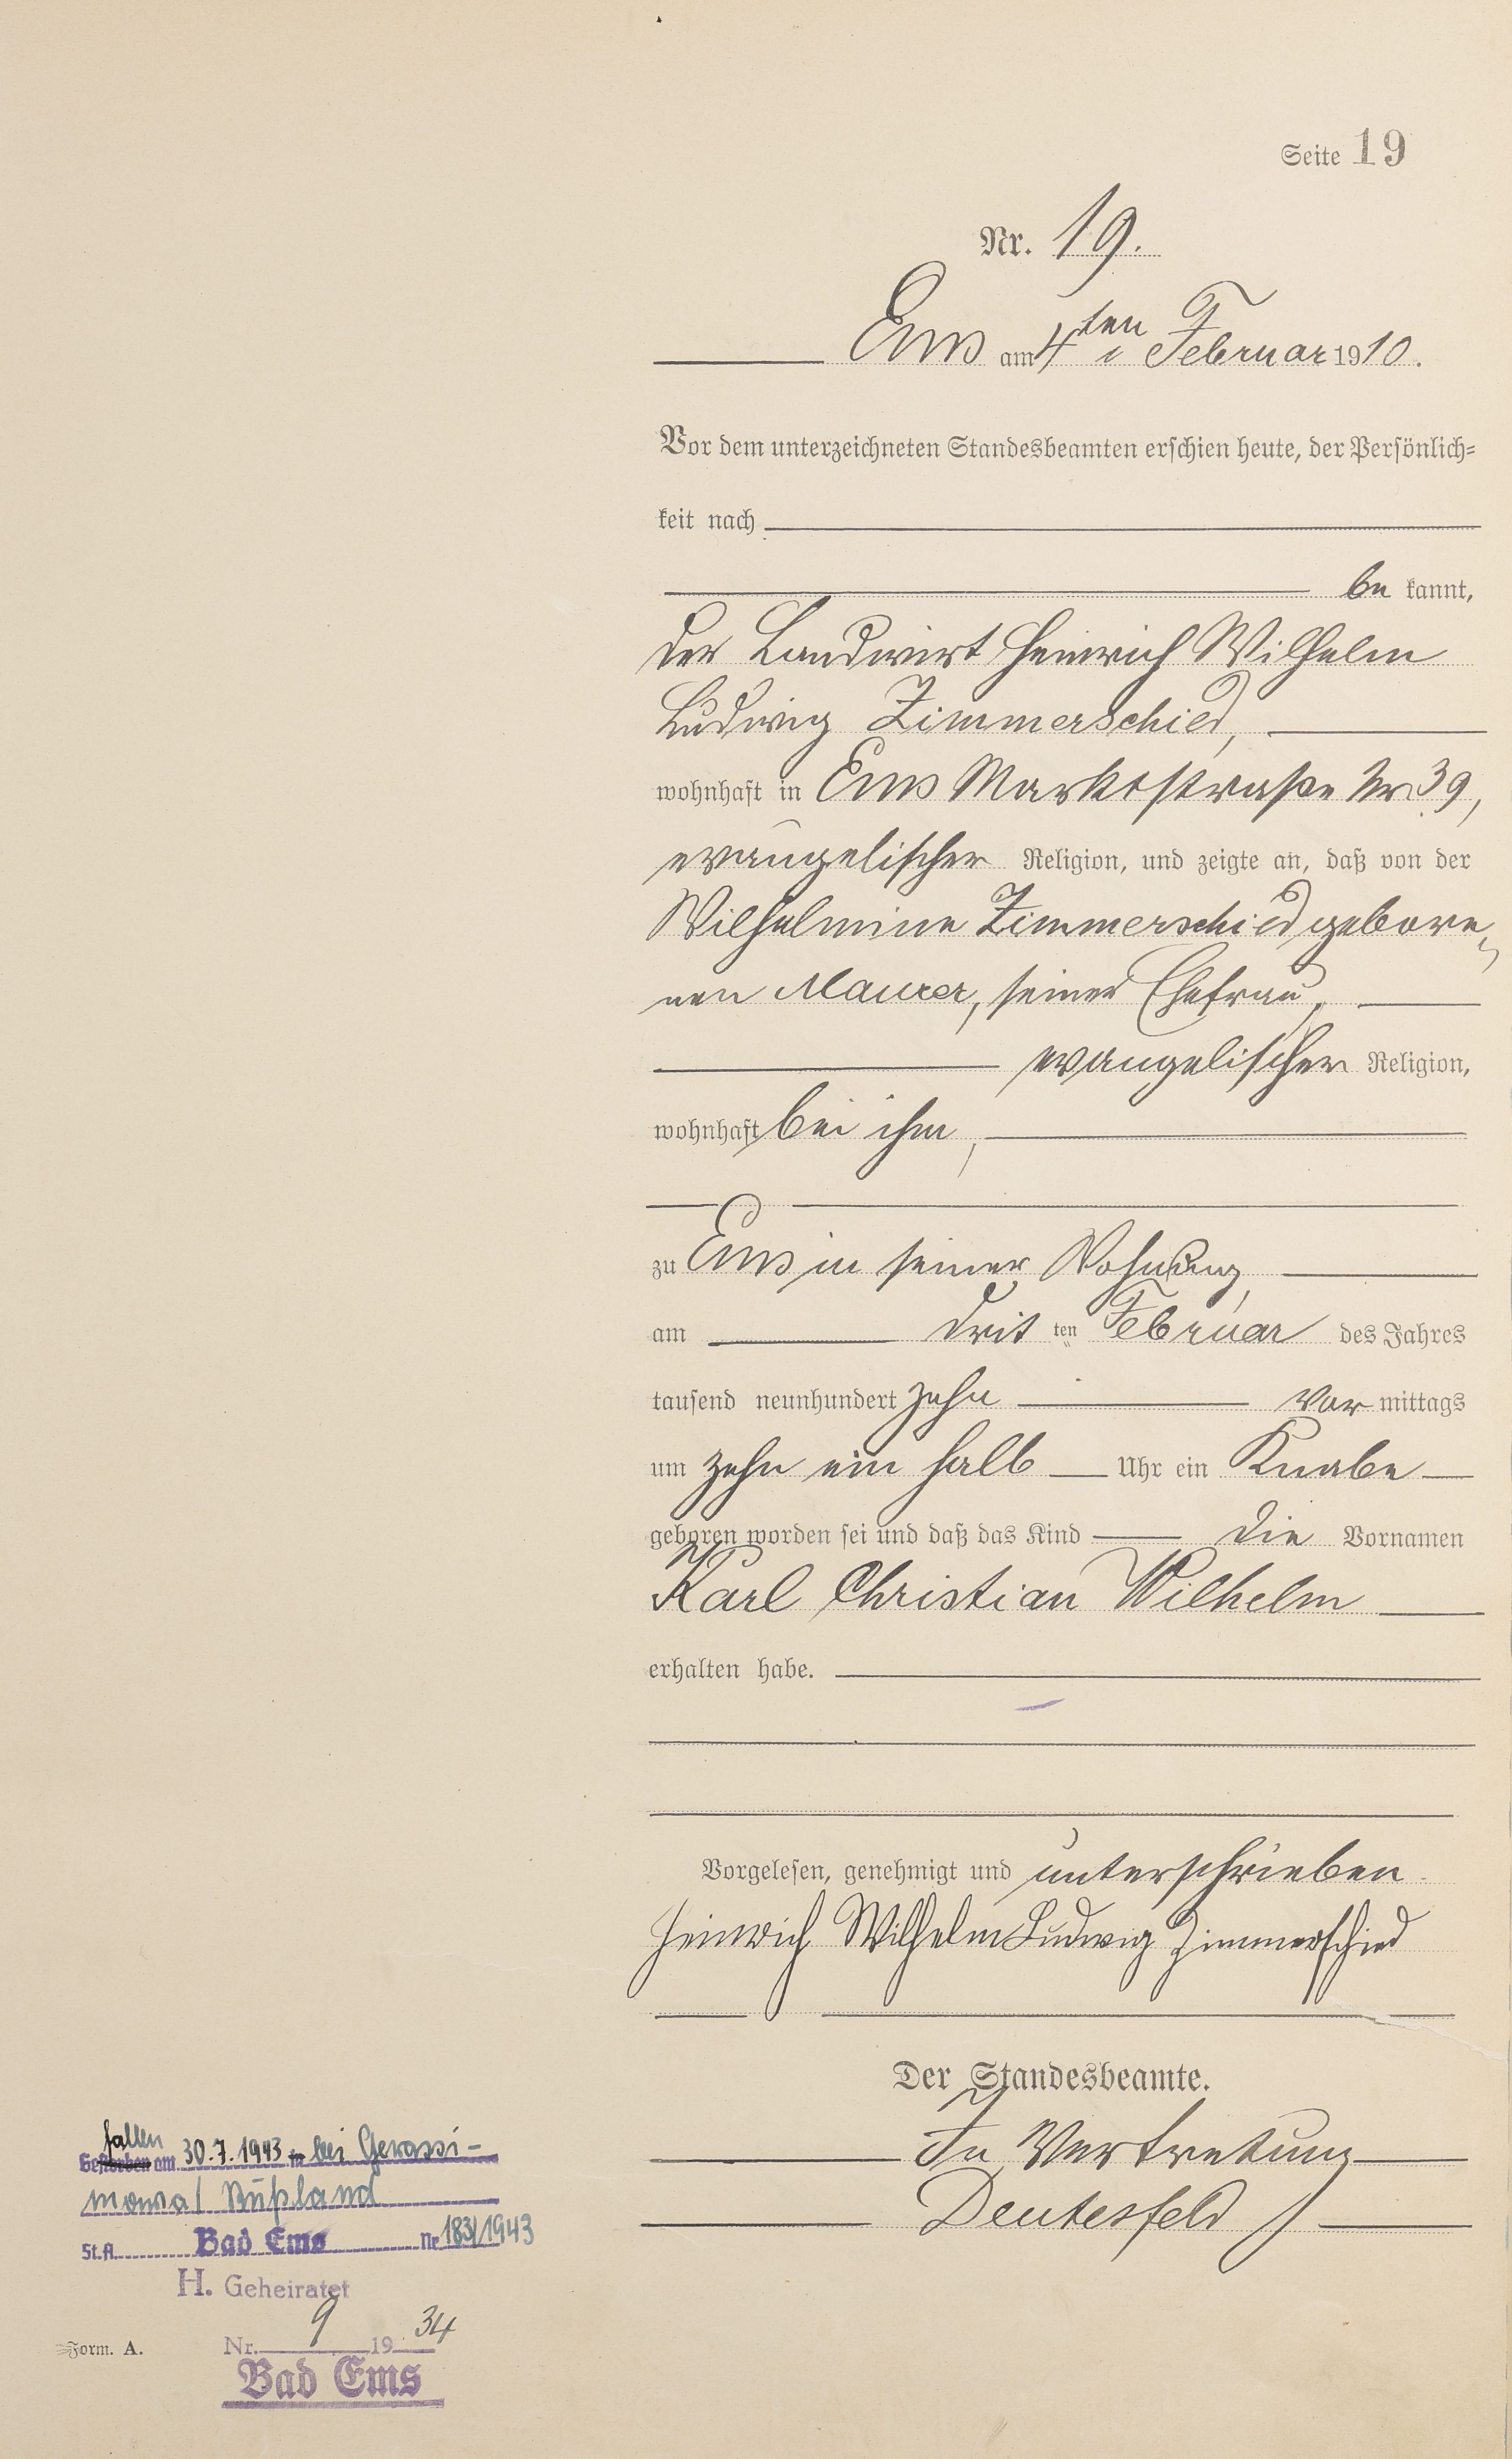 Seite 19
Nr. 19.
Ems am 4ten Februar 1910.
Vor dem unterzeichneten Standesbeamten erschien heute, der Persönlich-
keit nach
be kannt,
der Landwirt Heinrich Wilhelm
Ludwig Zimmerschied,
wohnhaft in Ems Marktstraße Nr. 39,
evangelischer Religion, und zeigte an, daß von der
Wilhelmine Zimmerschied gebore-
nen Maurer, seiner Ehefrau,
evangelischer Religion,
wohnhaft bei ihm,
zu Ems in seiner Wohnung,
am drit ten Februar des Jahres
tausend neunhundert zehn vor mittags
um zehn ein halb Uhr ein Knabe
geboren worden sei und daß das Kind die Vornamen
Karl Christian Wilhelm
erhalten habe.
Vorgelesen, genehmigt und unterschrieben
Heinrich Wilhelm Ludwig Zimmerschied
Der Standesbeamte.
In Vertretung
Deutesfeld
fallen
Gestorben am 30.7.1943 in bei Gerassi-
mowa / Rußland
St.A. Bad Ems Nr 183/1943
H. Geheiratet
Nr. 9 1934
Bad Ems
Form. A.